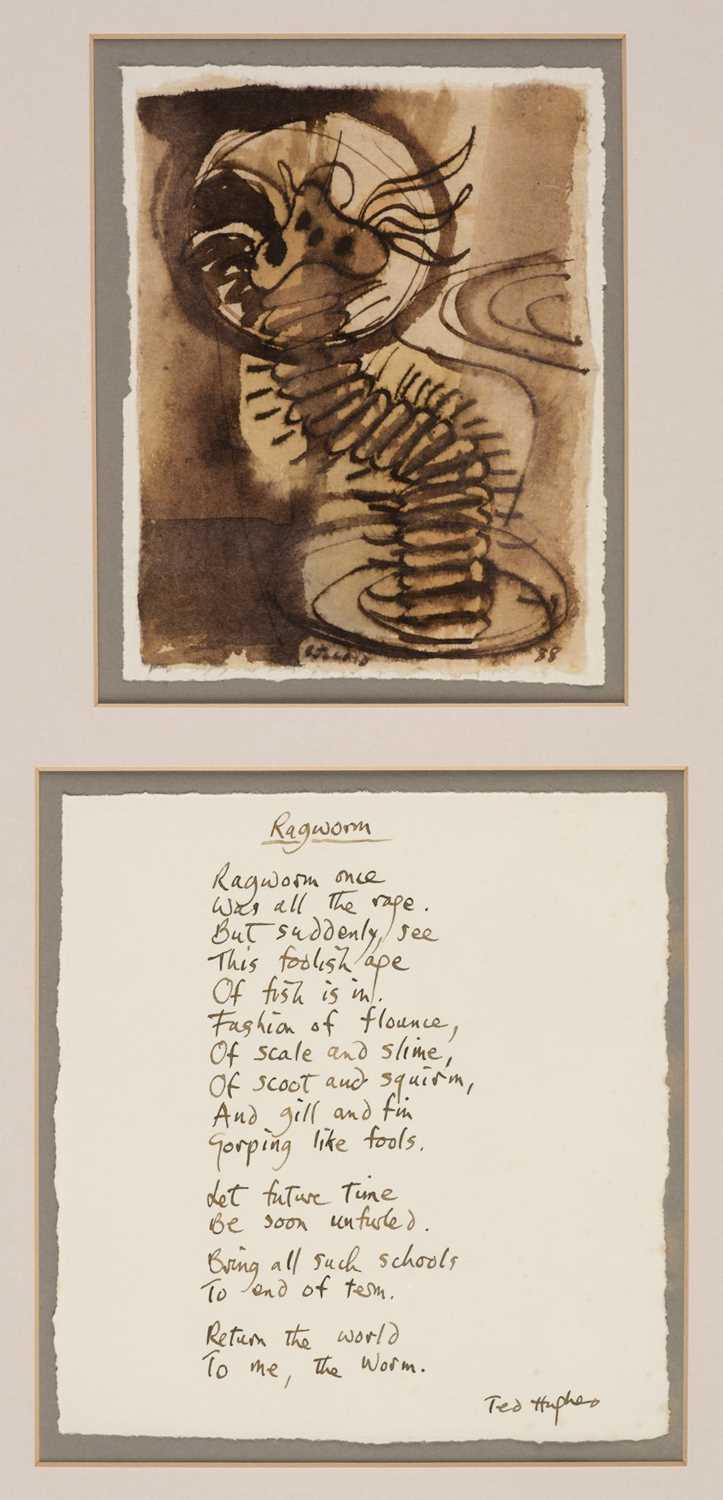 88
Ragworm
Ragworm once
Was all the rage.
But suddenly, see
This foolish age
Of fish is in.
Fashion of flounce,
Of scale and slime,
Of scoot and squirm,
And gill and fin
Gorping like fools.
Let future time
Be soon unfurled.
Bring all such schools
To end of term.
Return the world
To me, the Worm.
Ted Hughes